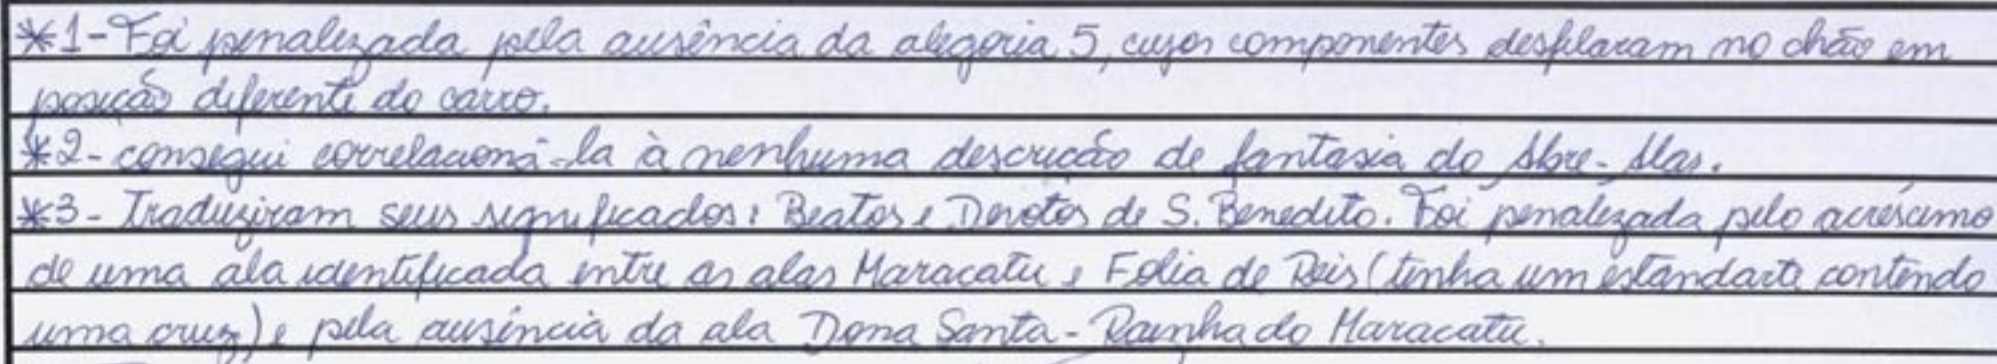 *1-Foi penalizada pela ausência da alegoria 5, cujos componentes desfilaram no chão em
posição diferente do carro.
*2- consegui correlacioná-la à nenhuma descrição de fantasia do Abre-Alas.
*3- Traduziram seus significados: Beatos e Devotos de S. Benedito. Foi penalizada pelo acréscimo
de uma ala identificada entre as alas Maracatu e Folia de Reis (tinha um estandarte contendo
uma cruz) e pela ausência da ala Dona Santa - Rainha do Maracatu.